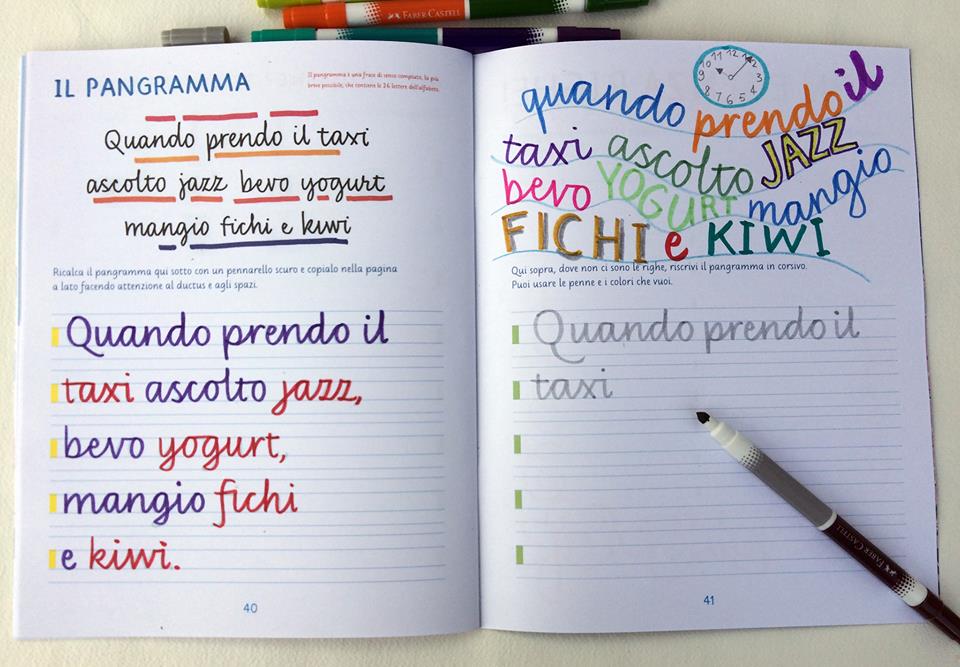 FABER-CASTELL
IL PANGRAMMA
Il pangramma è una frase di senso compiuto, la più
breve possibile, che contiene le 26 lettere dell'alfabeto.
Quando prendo il taxi
ascolto jazz bevo yogurt
mangio fichi e kiwi
Ricalca il pangramma qui sotto con un pennarello scuro e copialo nella pagina
a lato facendo attenzione al ductus e agli spazi.
Quando prendo il
taxi ascolto jazz,
bevo yogurt,
mangio fichi
e kiwi.
40
12
1
2
3
4
5
6
7
8
9
10
11
quando prendo il
taxi ascolto JAZZ
bevo YOGURT mangio
FICHI e KIWI
Qui sopra, dove non ci sono le righe, riscrivi il pangramma in corsivo.
Puoi usare le penne e i colori che vuoi.
Quando prendo il
taxi
41
FABER-CASTELL